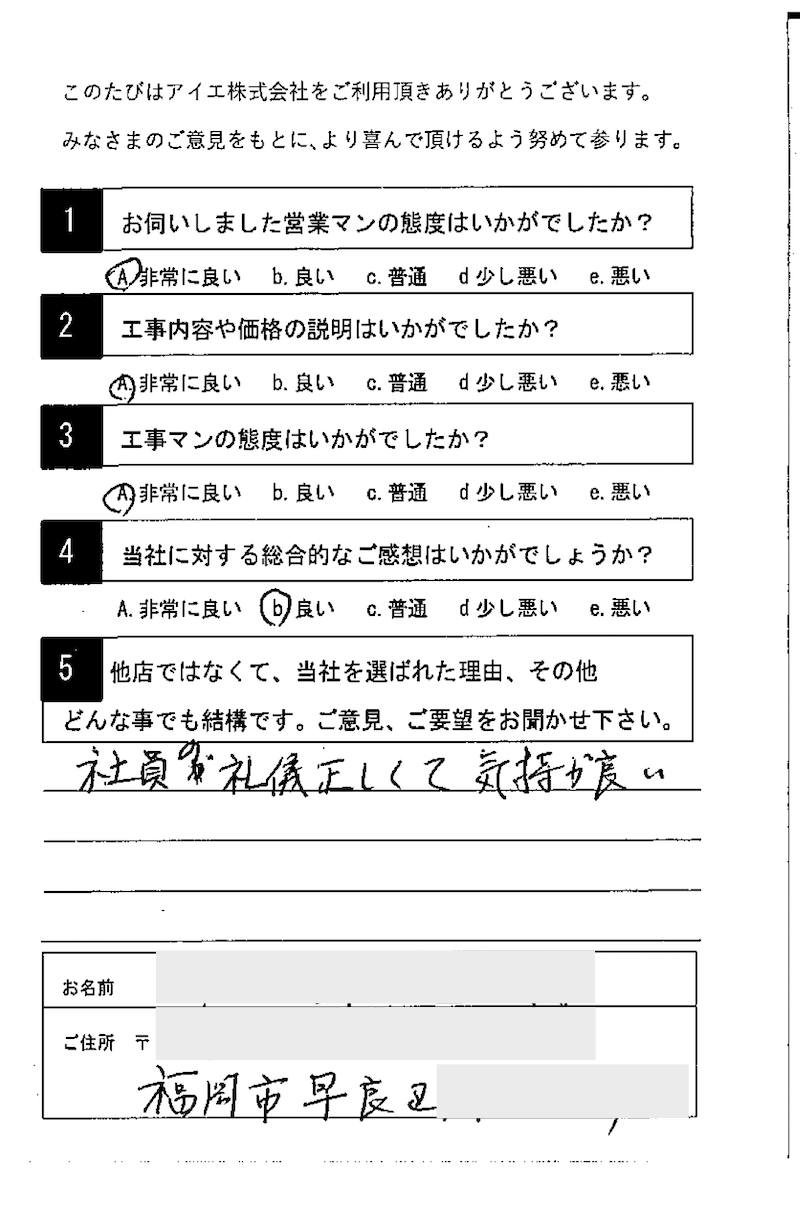 このたびはアイエ株式会社をご利用頂きありがとうございます。
みなさまのご意見をもとに、より喜んで頂けるよう努めて参ります。
1 お伺いしました営業マンの態度はいかがでしたか？
A. 非常に良い b. 良い c. 普通 d 少し悪い e. 悪い
2 工事内容や価格の説明はいかがでしたか？
A. 非常に良い b. 良い c. 普通 d 少し悪い e. 悪い
3 工事マンの態度はいかがでしたか？
A. 非常に良い b. 良い c. 普通 d 少し悪い e. 悪い
4 当社に対する総合的なご感想はいかがでしょうか？
A. 非常に良い b. 良い c. 普通 d 少し悪い e. 悪い
5 他店ではなくて、当社を選ばれた理由、その他
どんな事でも結構です。ご意見、ご要望をお聞かせ下さい。
社員の方が礼儀正しくて気持が良い
お名前
ご住所 〒
福岡市早良区